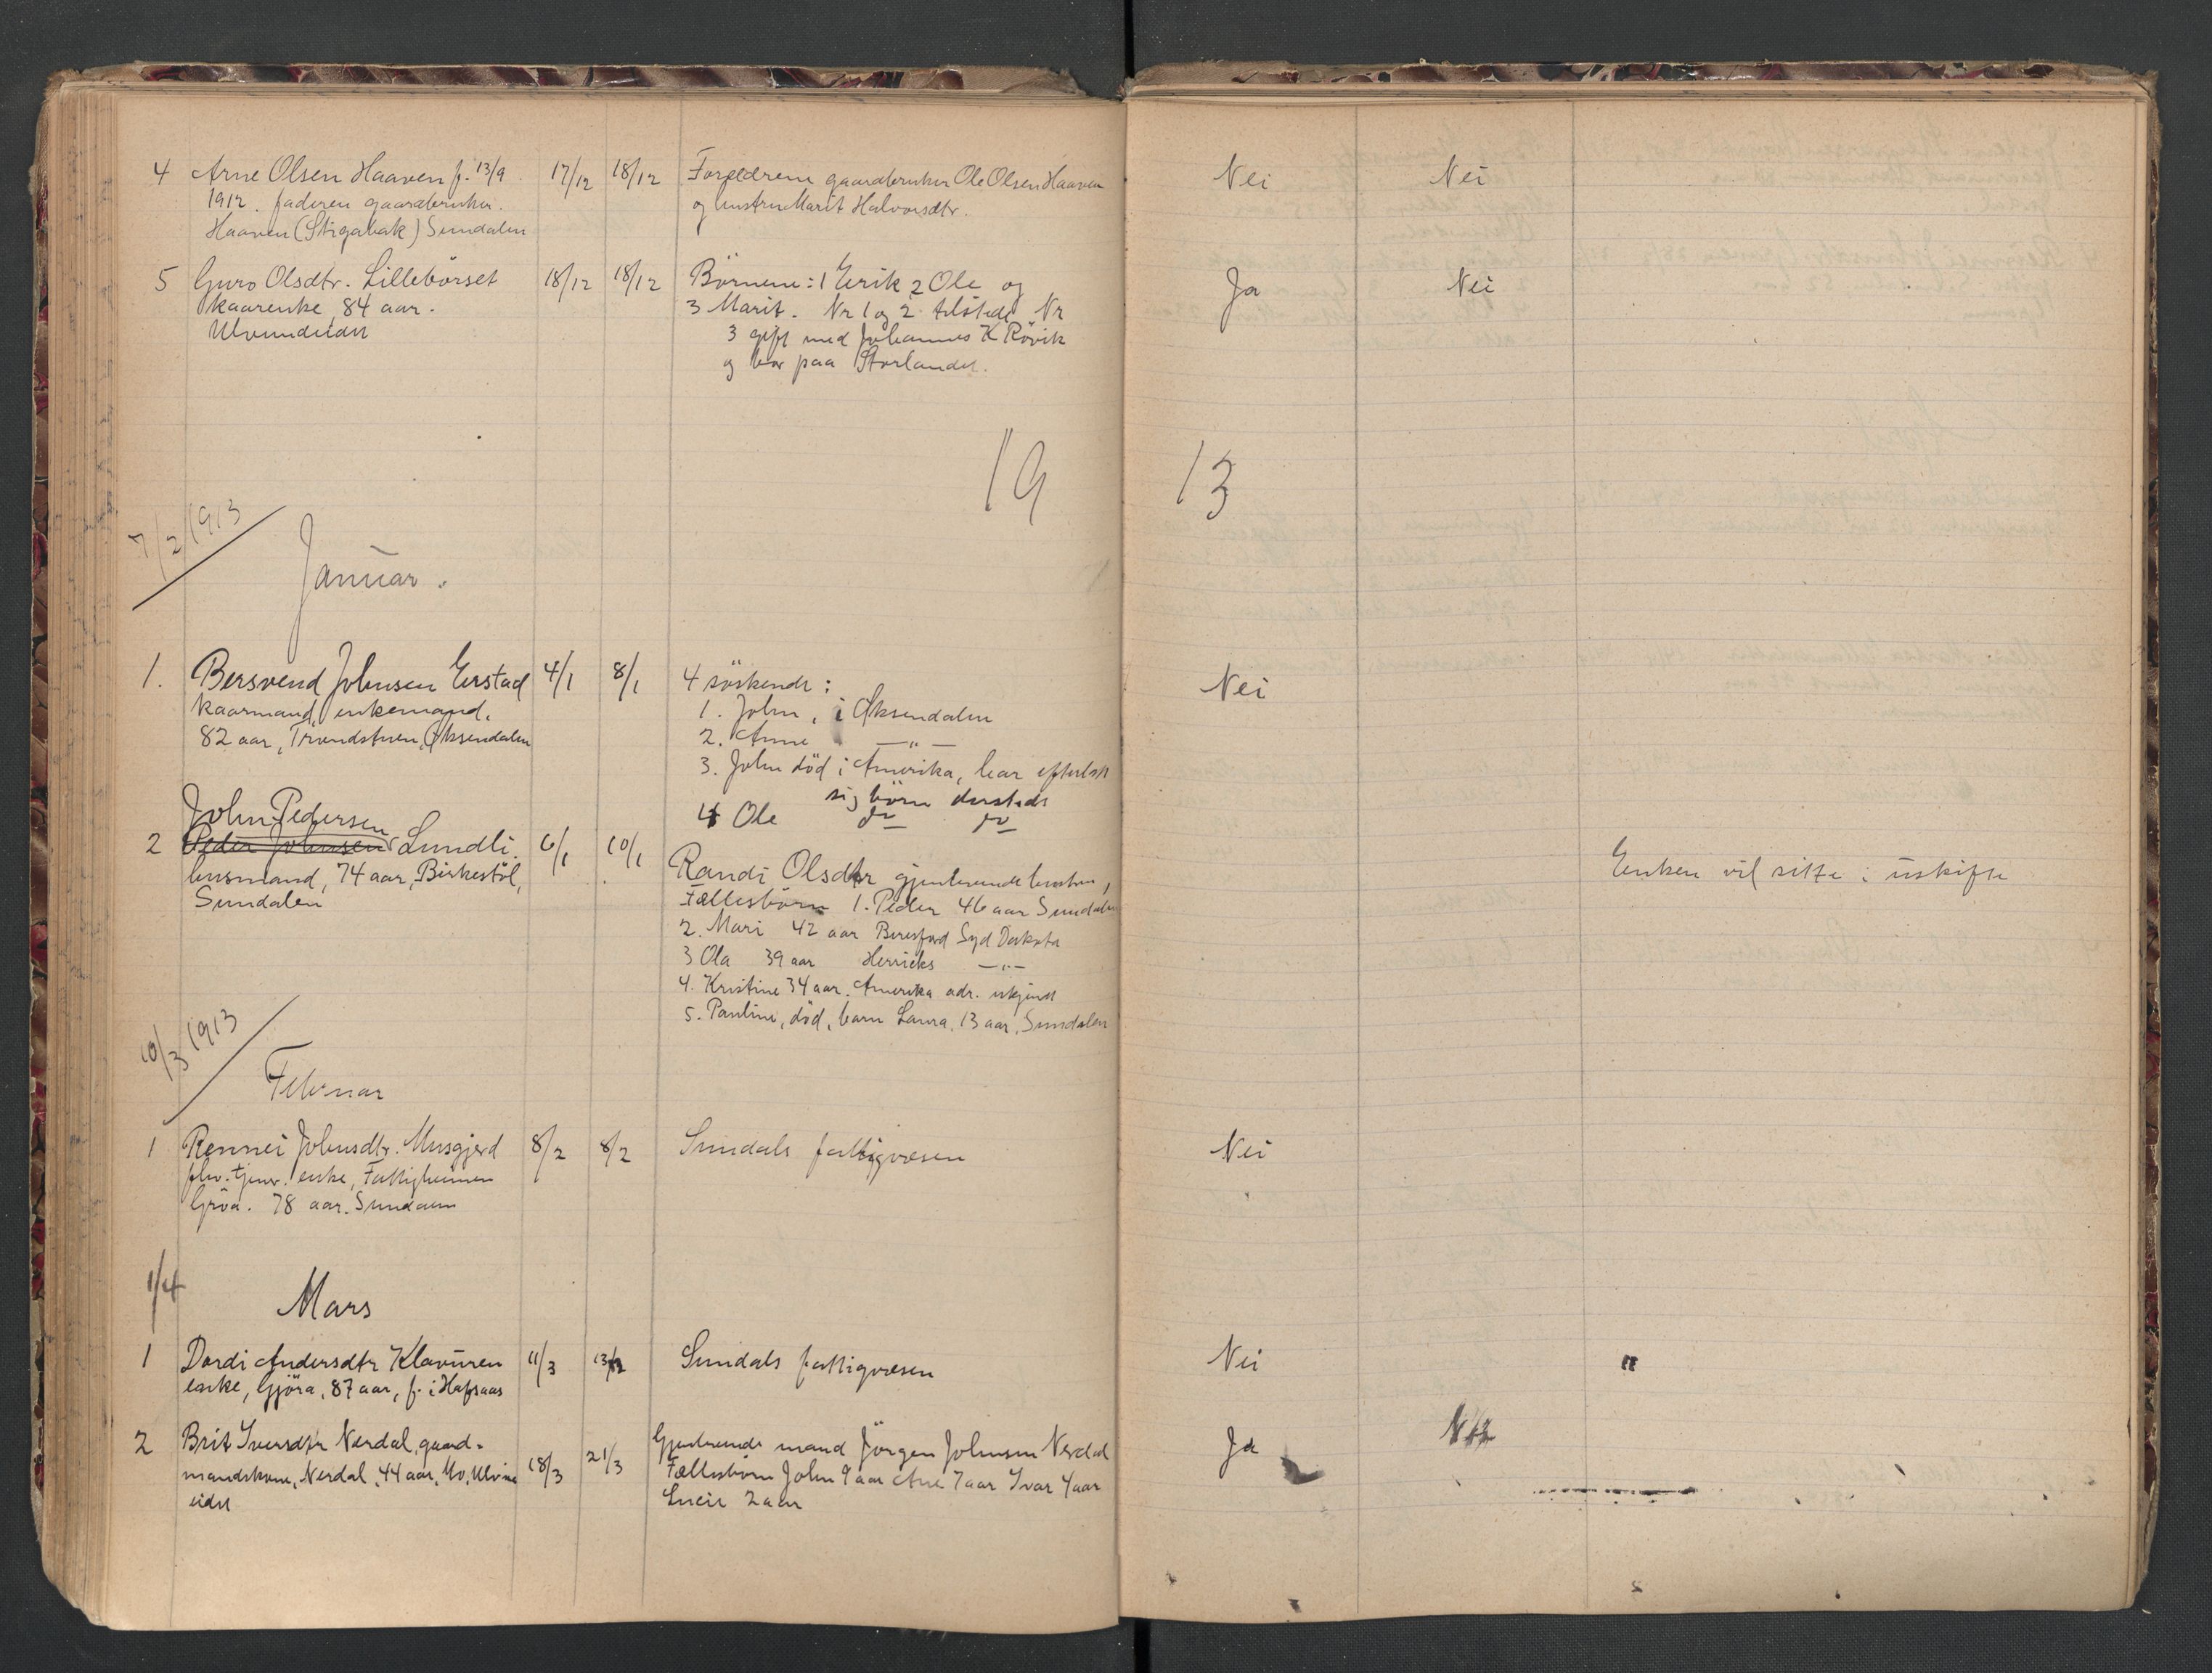 4 Arne Olsen Haaven f. 13/9 17/12 18/12 Forældrene gaardbruker Ole Olsen Haaven Nei Nei
1912. faderen gaardbruker. og hustru Marit Halvorsdtr.
Haaven (Stigabak) Sundalen
5 Guro Olsdtr. Lillebörset 18/12 18/12 Börnene: 1 Erik 2 Ole og Ja Nei
kaarenke, 84 aar. 3 Marit. Nr 1 og 2 tilstede Nr
Ulvundeidet 3 gift med Johannes K Rövik
og bor paa Storlandet.
19 13
7/2 1913
Januar.
1. Bersvend Johnsen Erstad 4/1 8/1 4 söskende: Nei
kaarmand, enkemand, 1. John, i Øksendalen
82 aar, Trondstuen, Øksendalen 2. Anne —"—
3. John död i Amerika, har efterlatt
sig börn dersteds
4 Ole do do
John Pedersen
2 Peder Johnsen Lundli. 6/1 10/1 Randi Olsdtr gjenlevende hustru, Enken vil sitte i uskifte
husmand, 74 aar, Birkestöl, Fællesbörn 1. Peder 46 aar Sundalen
Sundalen 2. Mari 42 aar Beresford Syd Dakota
3 Ola 39 aar Herricks —"—
4. Kristine 34 aar. Amerika adr. ukjendt
5. Pauline, död, barn Laura, 13 aar, Sundalen
10/3 1913
Februar
1 Rennei Johnsdtr. Musgjerd 8/2 8/2 Sundals fattigvæsen Nei
enke, Fattighjemmen
Gröa. 78 aar. Sundalen
1/4
Mars
1 Dordi Andersdtr Klavuren 11/3 Sundals fattigvæsen Nei "
enke, Gjöra, 87 aar, f. i Hafsaas
2 Brit Iversdtr Nerdal, gaard- 18/3 21/3 Gjenlevende mand Jörgen Johnsen Nerdal Ja
mandskone, Nerdal, 44 aar, Fællesbörn John 9 aar Ane 7 aar Ivar 4 aar
eidet 2 aar